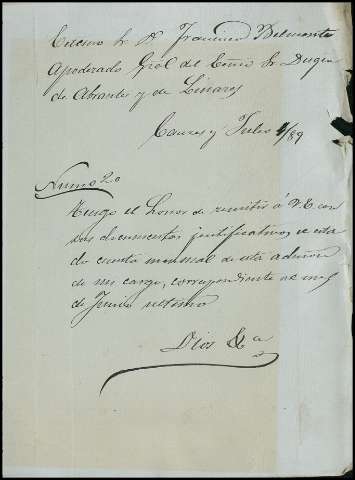 Excmo Sr D. Francisco Belmonte
Apoderado Gral del Excmo Sr Duque
de Abrantes y de Linares
Julio 4/89
Numo 20
Tengo el honor de remitir á V.E con
sus documentos justificativos el esta
do cuenta mensual de esta admon
de mi cargo, correspondiente al mes
de Junio ultimo
Dios &a